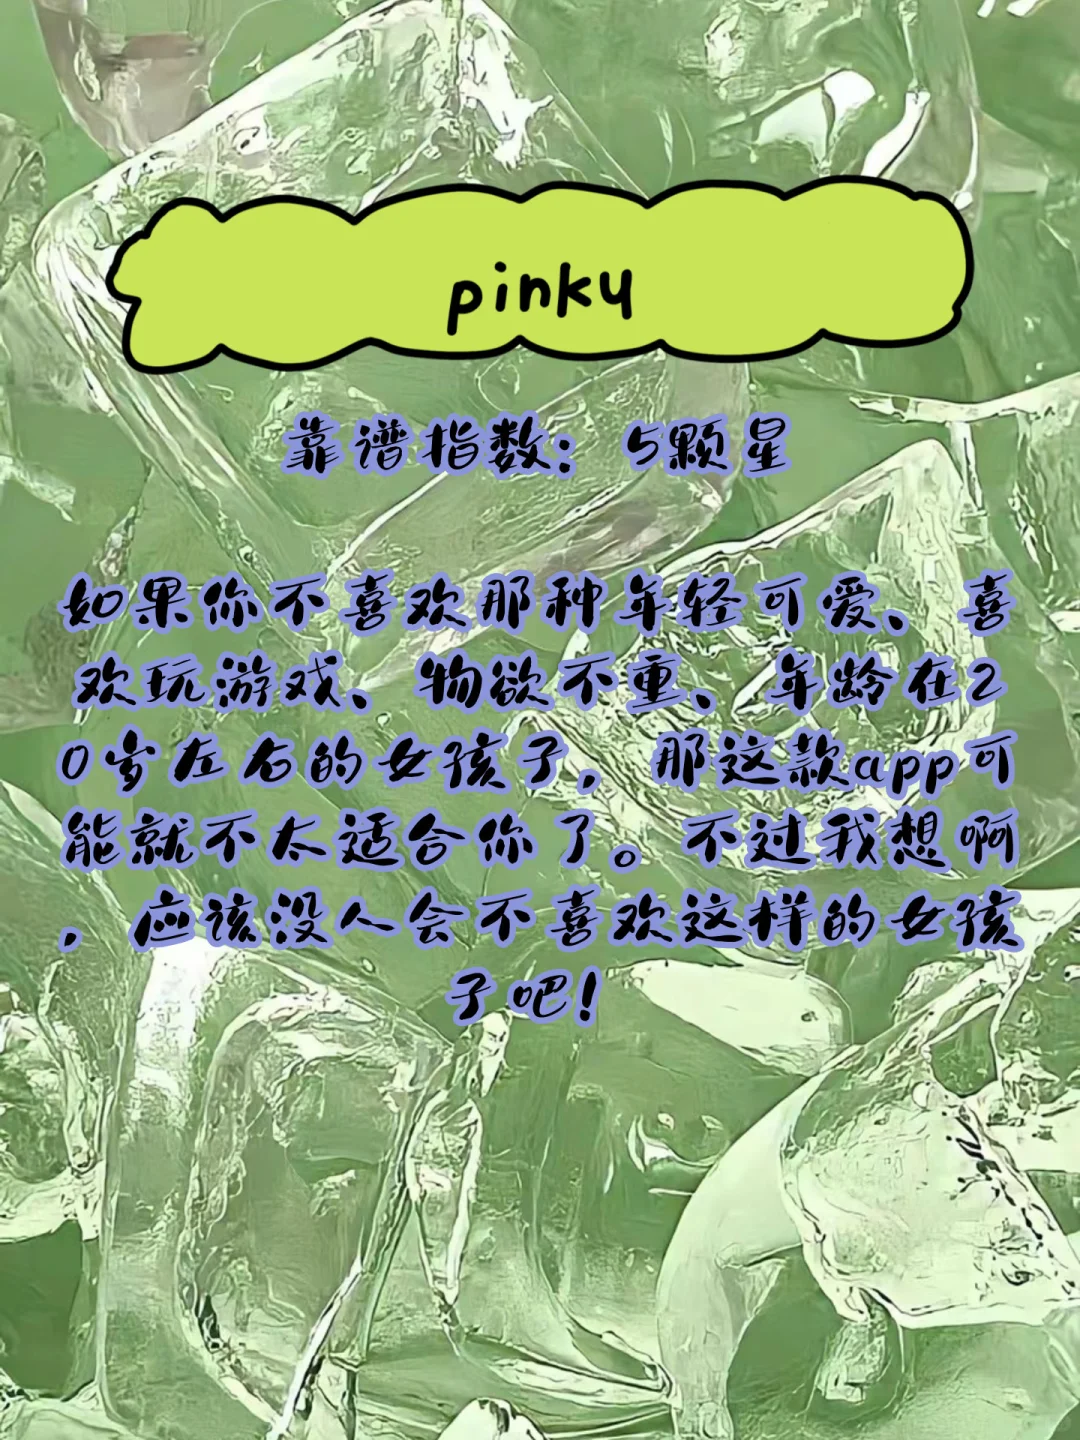 pinky
靠谱指数：5颗星
如果你不喜欢那种年轻可爱、喜
欢玩游戏、物欲不重、年龄在2
0岁左右的女孩子，那这款app可
能就不太适合你了。不过我想啊
，应该没人会不喜欢这样的女孩
子吧！